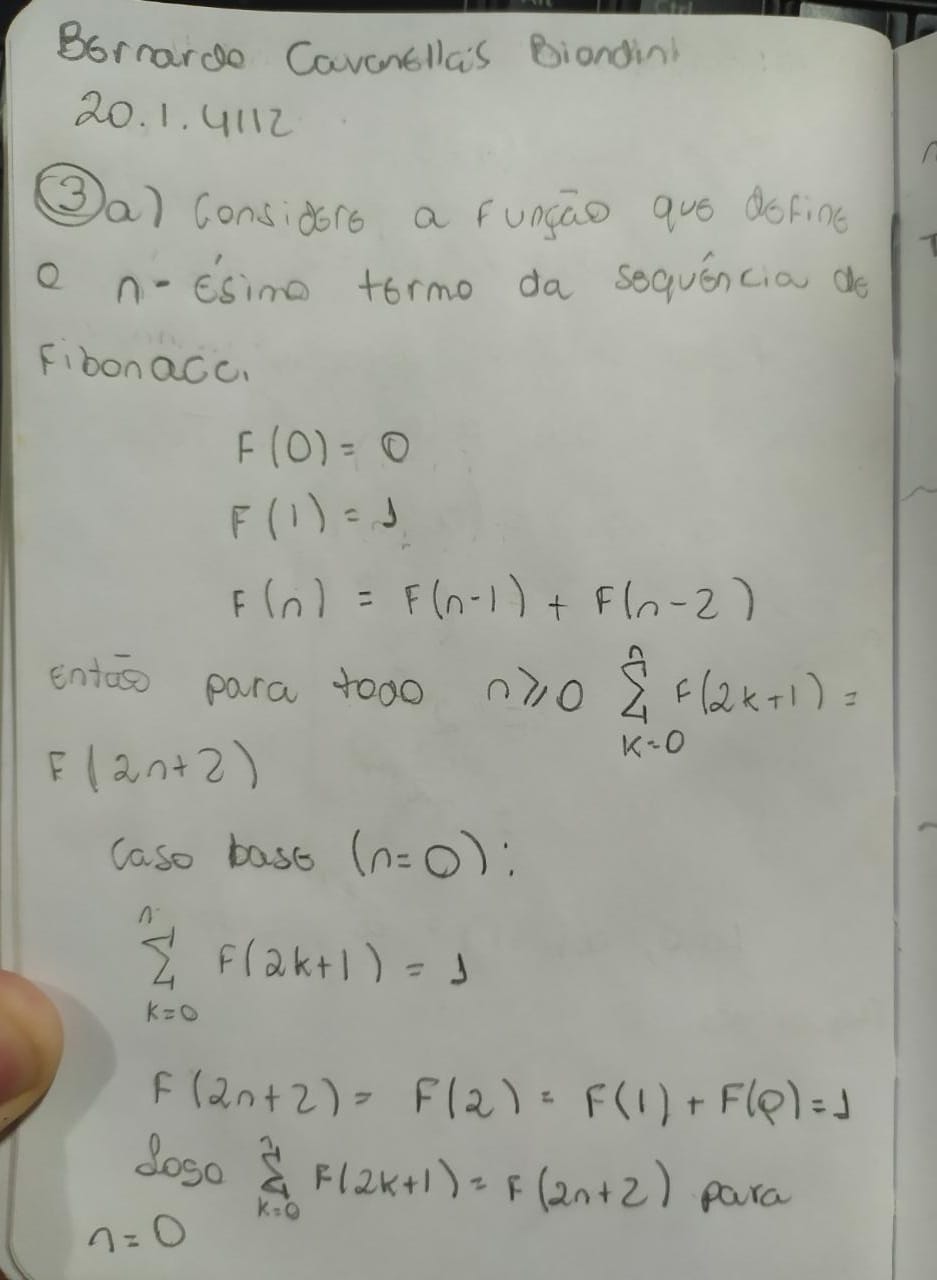 Bernardo Cavanellas Biondini
20.1.4112
③a) Considere a função que define
o n-ésimo termo da sequência de
Fibonacci
F(0) = 0
F(1) = 1
F(n) = F(n-1) + F(n-2)
então para todo n≥0 ∑_{k=0}^{n} F(2k+1) =
F(2n+2)
Caso base (n=0):
∑_{k=0}^{n} F(2k+1) = 1
F(2n+2) = F(2) = F(1) + F(0) = 1
Logo ∑_{k=0}^{n} F(2k+1) = F(2n+2) para
n=0